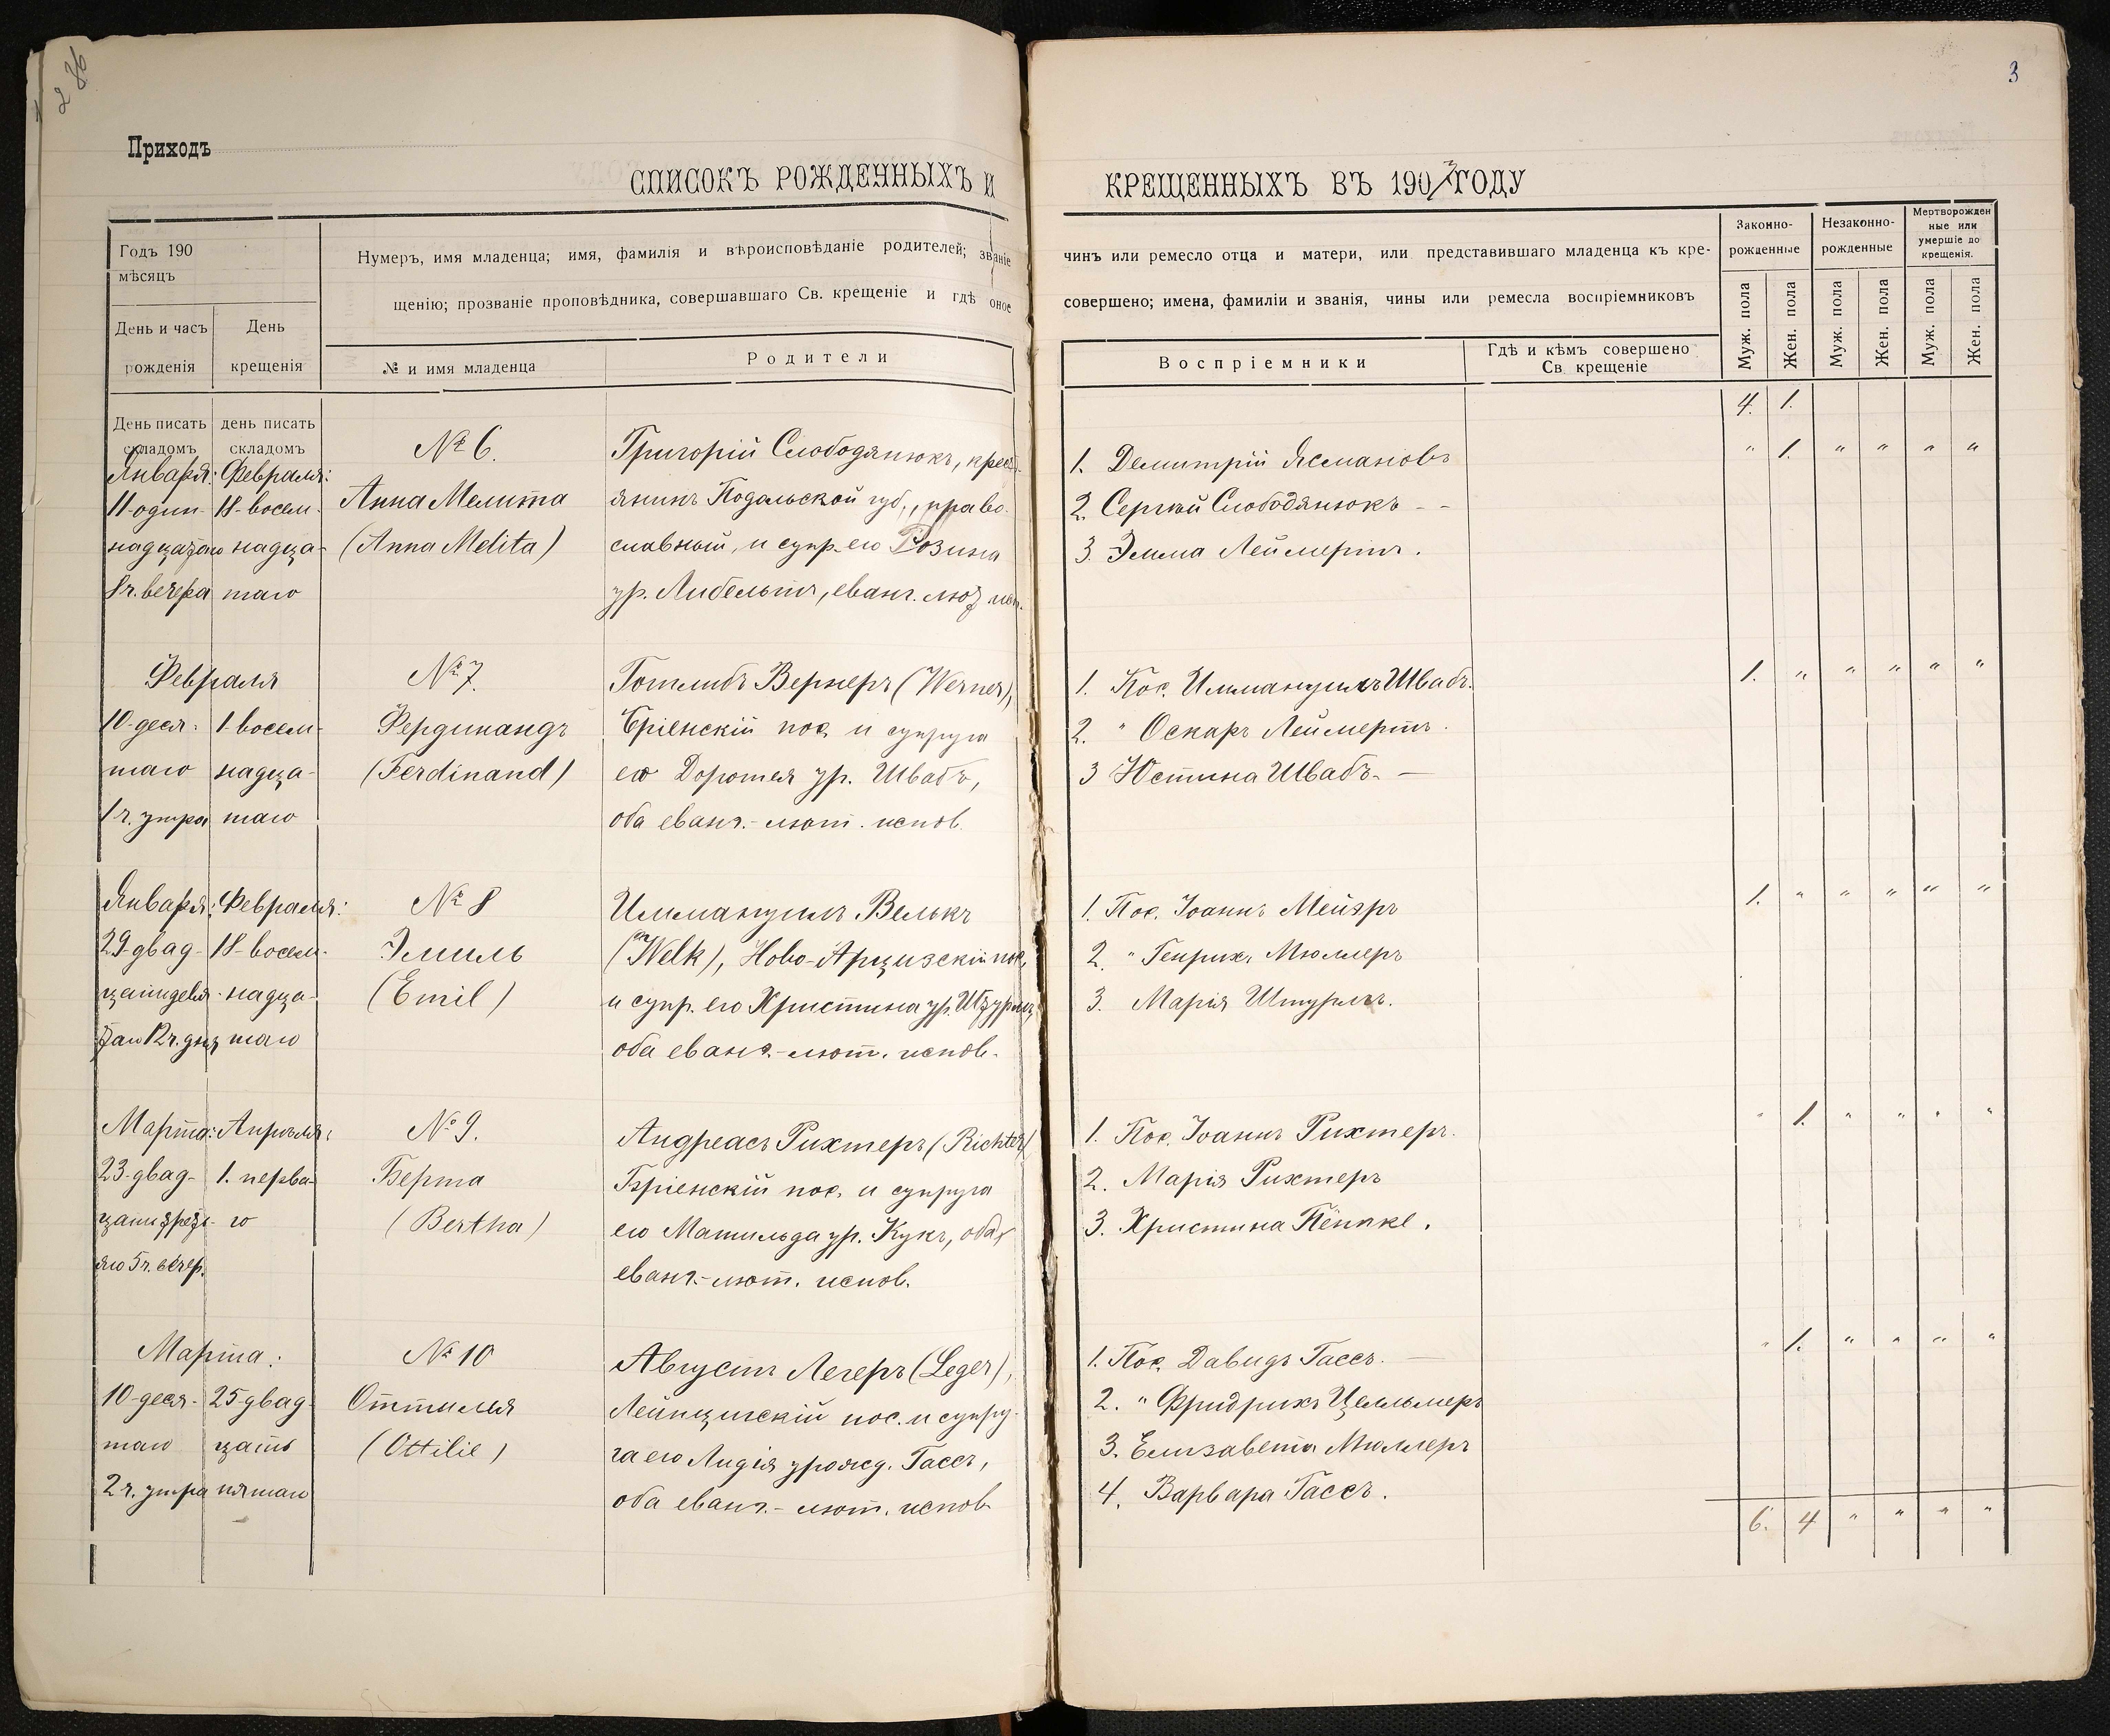 286
3
Приходъ
СПИСОКЪ РОЖДЕННЫХЪ И КРЕЩЕННЫХЪ ВЪ 1907 ГОДУ
Годъ 190
мѣсяцъ
День и часъ рожденія
День крещенія
Нумеръ, имя младенца; имя, фамилія и вѣроисповѣданіе родителей; званіе чинъ или ремесло отца и матери, или представившаго младенца къ кре-
щенію; прозваніе проповѣдника, совершавшаго Св. крещеніе и гдѣ оное совершено; имена, фамиліи и званія, чины или ремесла воспріемниковъ
№ и имя младенца
Родители
Воспріемники
Гдѣ и кѣмъ совершено
Св. крещеніе
Законно-
рожденные
Незаконно-
рожденные
Мертворожден
ные или
умершіе до
крещенія.
Муж. пола
Жен. пола
Муж. пола
Жен. пола
Муж. пола
Жен. пола
День писать
складомъ
день писать
складомъ
4. 1.
Января:
11-один-
надцатаго
8 ч. вечера
Февраля:
18-восем-
надца-
таго
№ 6.
Анна Мелита
(Anna Melita)
Григорій Слободянюкъ, крест-
янинъ Подольской губ., право-
славный, и супр. его Розина
ур. Либельтъ, еванг. лют. исп.
1. Демитрій Ясмановъ
2. Сергѣй Слободянюкъ - -
3. Эмма Леймертъ.
" 1. " " " "
Февраля
10-деся-
таго
1 ч. утра
1-восем-
надца-
таго
№ 7.
Фердинандъ
(Ferdinand)
Готлибъ Вернеръ (Werner),
Бріенскій пос. и супруга
его Доротея ур. Швабъ,
оба еванг.-лют. испов.
1. Пос. Иммануилъ Швабъ.
2. " Оскаръ Леймертъ.
3 Юстина Швабъ. —
1. " " " " "
Января:
29-двад-
цатидевя-
таго 12 ч. дня
Февраля:
18-восем-
надца-
таго
№ 8
Эмиль
(Emil)
Иммануилъ Велькъ
(Welk), Ново-Арцизскій пос.
и супр. его Христина ур. Штурмъ,
оба еванг.-лют. испов.
1. Пос. Іоаннъ Мейэръ
2. " Генрихъ Мюллеръ
3. Марія Штурмъ.
1. " " " " "
Марта:
23-двад-
цатитреть-
яго 5 ч. вечер.
Апрѣля:
1. перва-
го
№ 9.
Берта
(Bertha)
Андреасъ Рихтеръ (Richter)
Бріенскій пос. и супруга
его Матильда ур. Кукъ, оба
еванг.-лют. испов.
1. Пос. Іоаннъ Рихтеръ.
2. Марія Рихтеръ
3. Христина Пёппке.
" 1. " " " "
Марта:
10-деся-
таго
2 ч. утра
25-двад-
цать
пятаго
№ 10
Оттилія
(Ottilie)
Августъ Легеръ (Leger),
Лейпцигскій пос. и супру-
га его Лидія урожд. Гассъ,
оба еванг.-лют. испов.
1. Пос. Давидъ Гассъ. —
2. " Фридрихъ Целльмеръ
3. Елизавета Мюллеръ
4. Варвара Гассъ.
" 1. " " " "
6. 4 " " " "